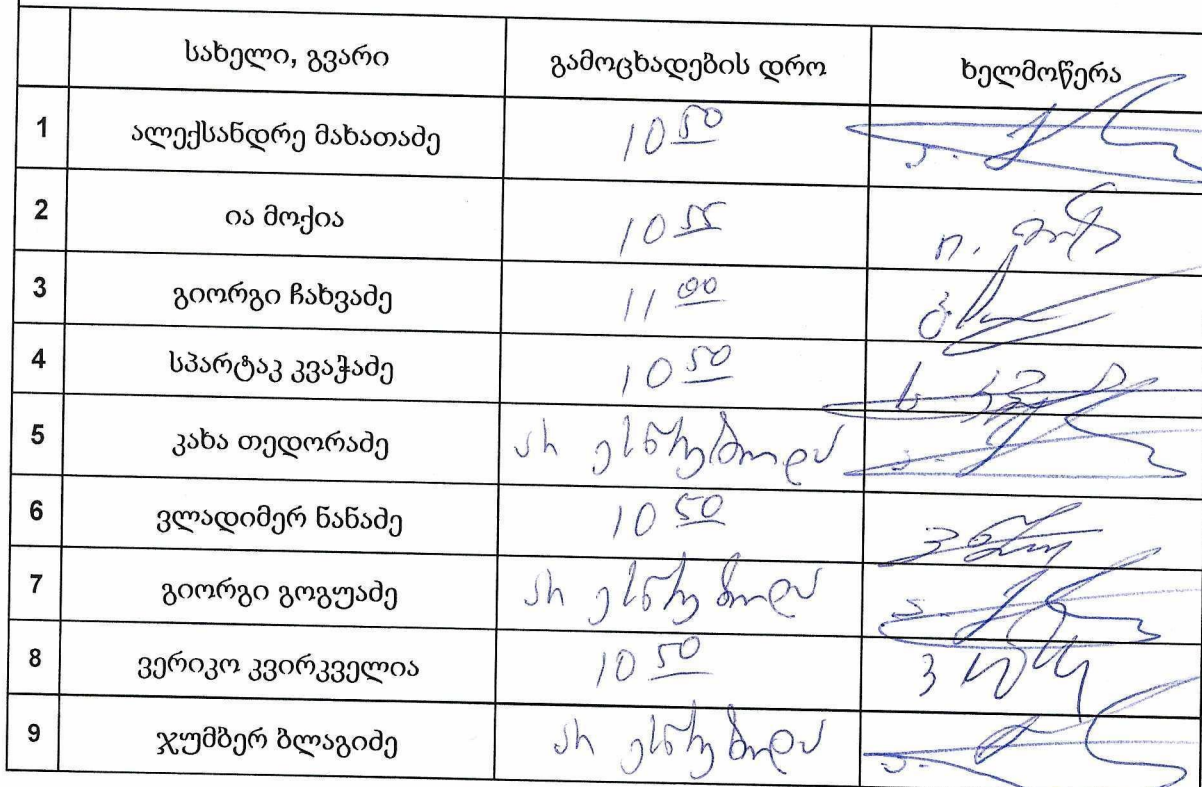 სახელი, გვარი გამოცხადების დრო ხელმოწერა
1 ალექსანდრე მახათაძე 10 50
2 ია მოქია 10 55
3 გიორგი ჩახვაძე 11 00
4 სპარტაკ კვაჭაძე 10 50
5 კახა თედორაძე არ ესწრებოდა
6 ვლადიმერ ნანაძე 10 50
7 გიორგი გოგუაძე არ ესწრებოდა
8 ვერიკო კვირკველია 10 50
9 ჯუმბერ ბლაგიძე არ ესწრებოდა